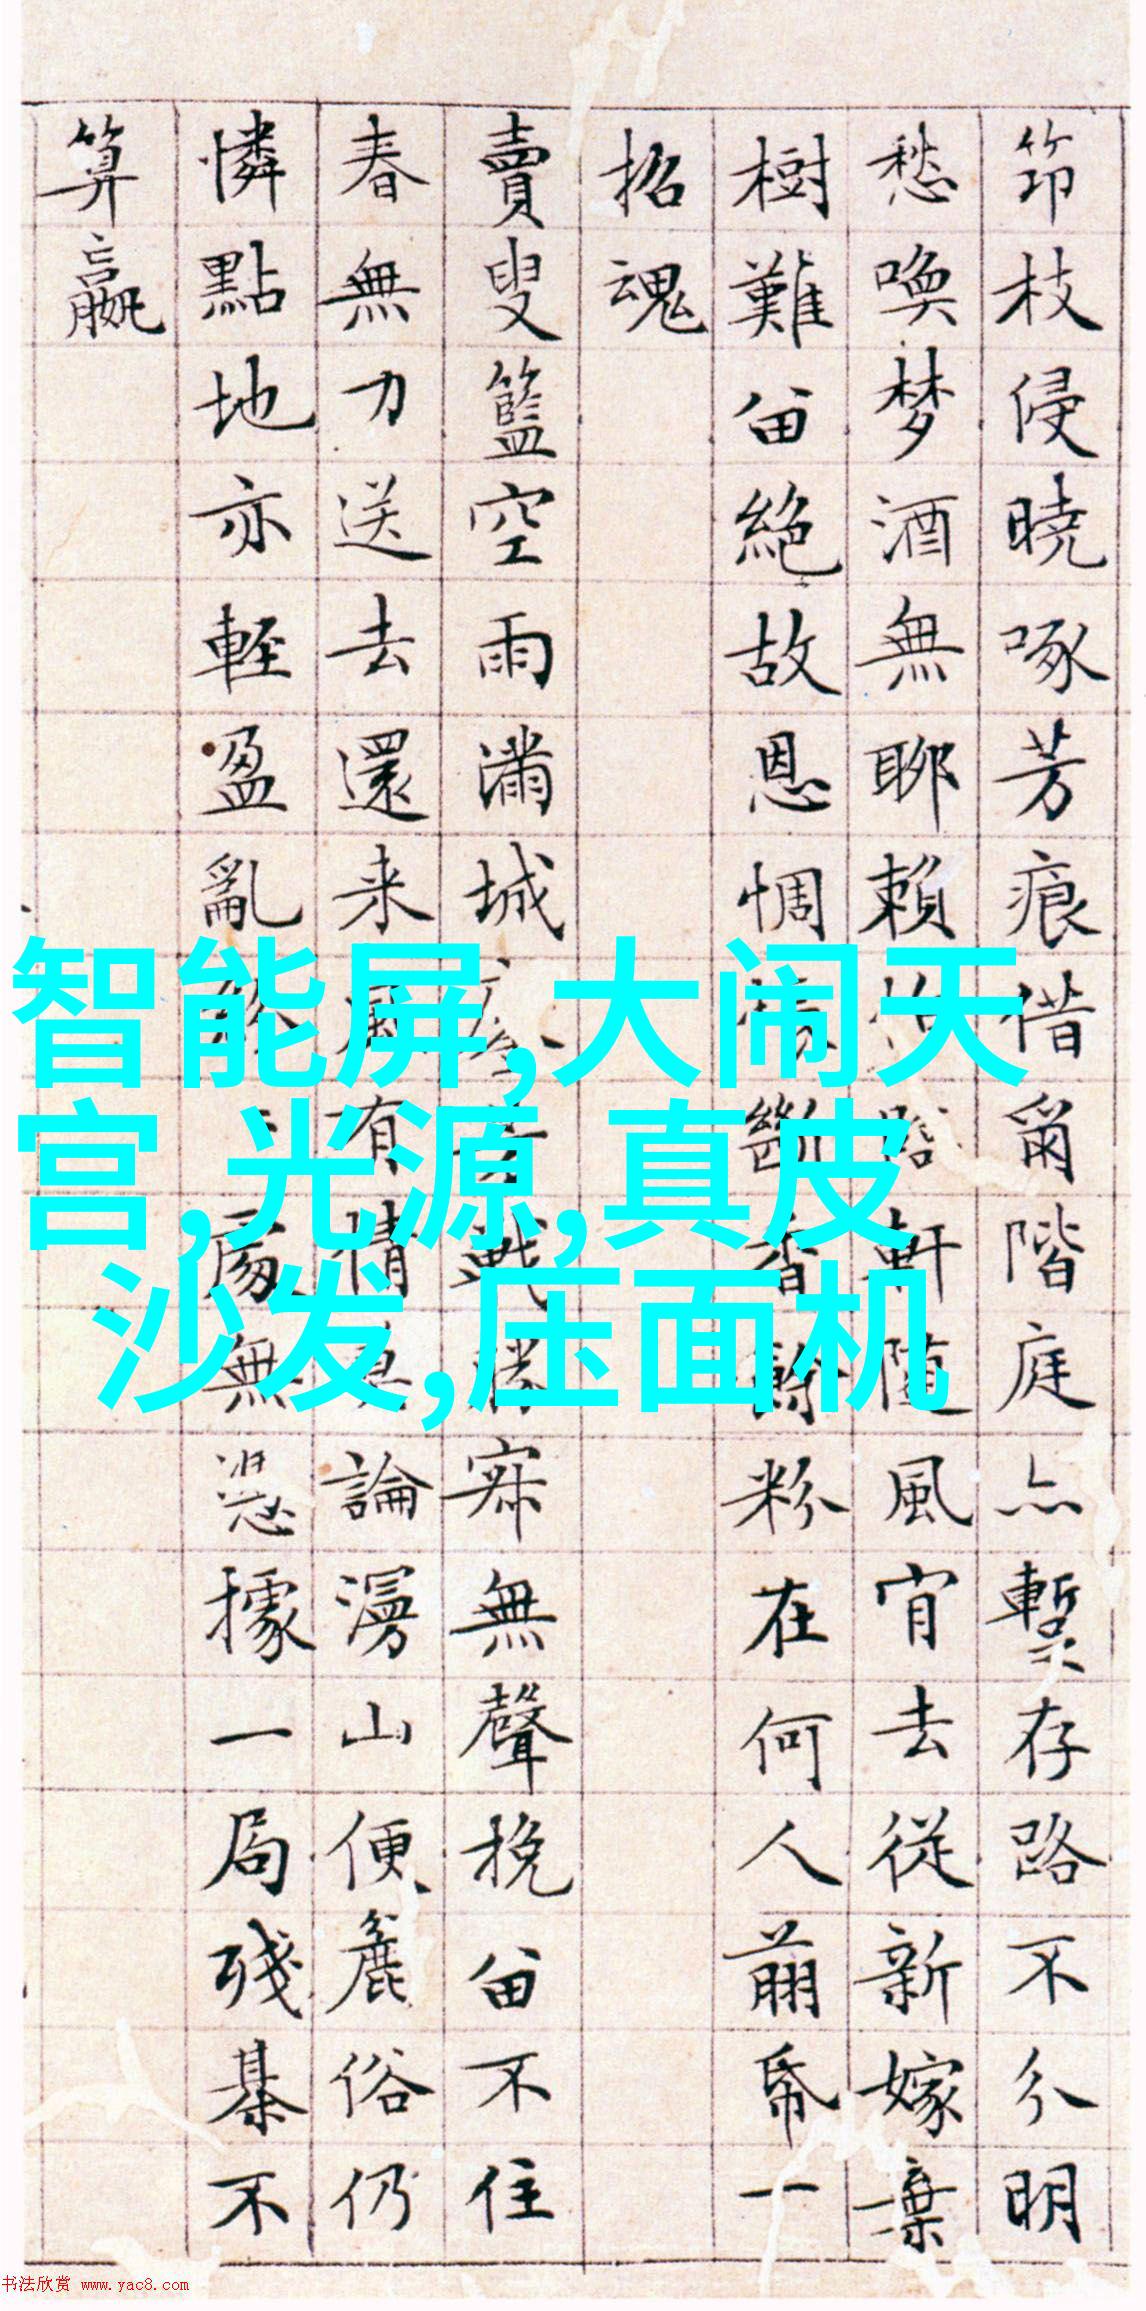 節枝侵曉啄芳痕借爾階庭亦暫存路不分明
愁喚梦酒無聊賴 隨風宵去從新嫁棄
樹難留絶故恩惆悵斷香餘粉在何人葫帋一
招魂
賣叟籃空雨滿城 戰 寐無聲挽留不住
春無力送去還来風有情 論漫山便麁俗仍
憐點地亦輕盈亂 無憑據一局殘棊不
算贏
智能屏,大闹天
宫,光源,真皮
沙发,压面机
书法欣赏 www.yac8.com